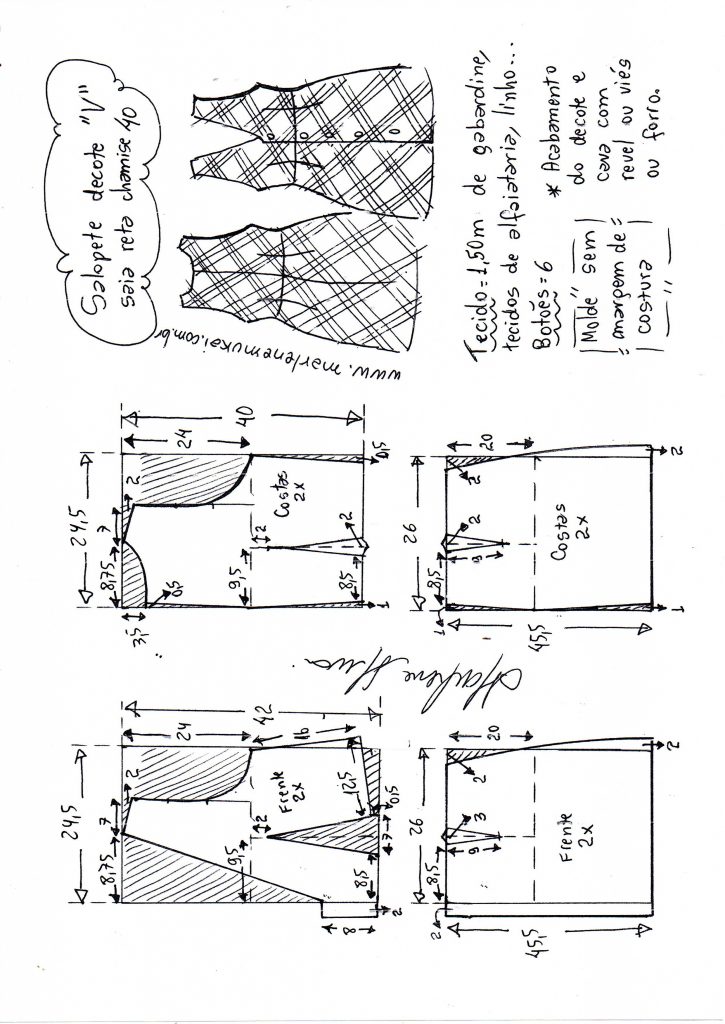 Salopete decote "V"
saia reta chamise 40
www.marlenemukai.com.br
Tecido = 1,50m de gabardine,
tecidos de alfaiataria, linho...
Botões = 6
* Acabamento
do decote e
cava com
revel ou viés
ou forro.
Molde sem
margem de
costura
40
24
24,5
7
2
8,75
3,5
0,5
9,5
2
Costas
2x
8,5
2
0,5
1
26
20
2
8,5
2
9
Costas
2x
1
45,5
1
2
42
24
24,5
7
2
8,75
9,5
2
Frente
2x
16
12,5
0,5
7
8,5
8
2
26
20
2
8,5
3
9
Frente
2x
2
45,5
2